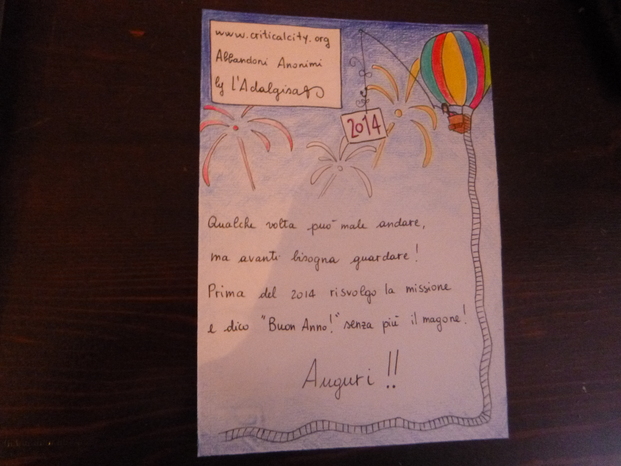 www.criticalcity.org
Abbandoni Anonimi
by L'Adalgisa
2014
Qualche volta può male andare,
ma avanti bisogna guardare!
Prima del 2014 risvolgo la missione
e dico "Buon Anno!" senza più il magone!
Auguri!!